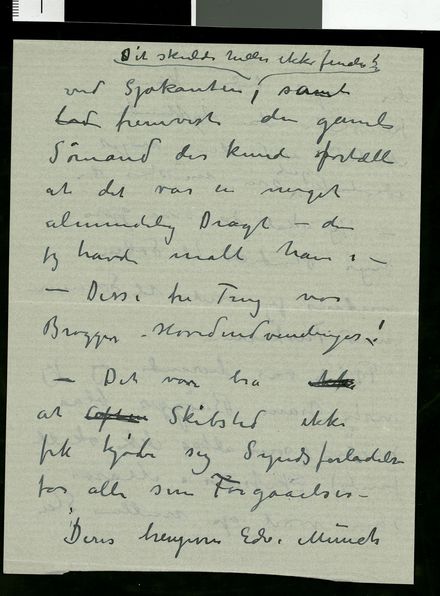 Dit skulde heller ikke findes
ved Sjøkanten; samt
lod fremviste den gamle
Sömand der kunde fortælle
at det var en meget
almindelig Dragt – den
jeg havde malt ham i –
– Disse tre Ting var
Brøgger – Hovedindvendinger!
– Det var bra
at Skibsted ikke
fik kjøbe sig Syndsforladelse
for alle sine Forgaaelser –
Deres hengivne Edv. Munch